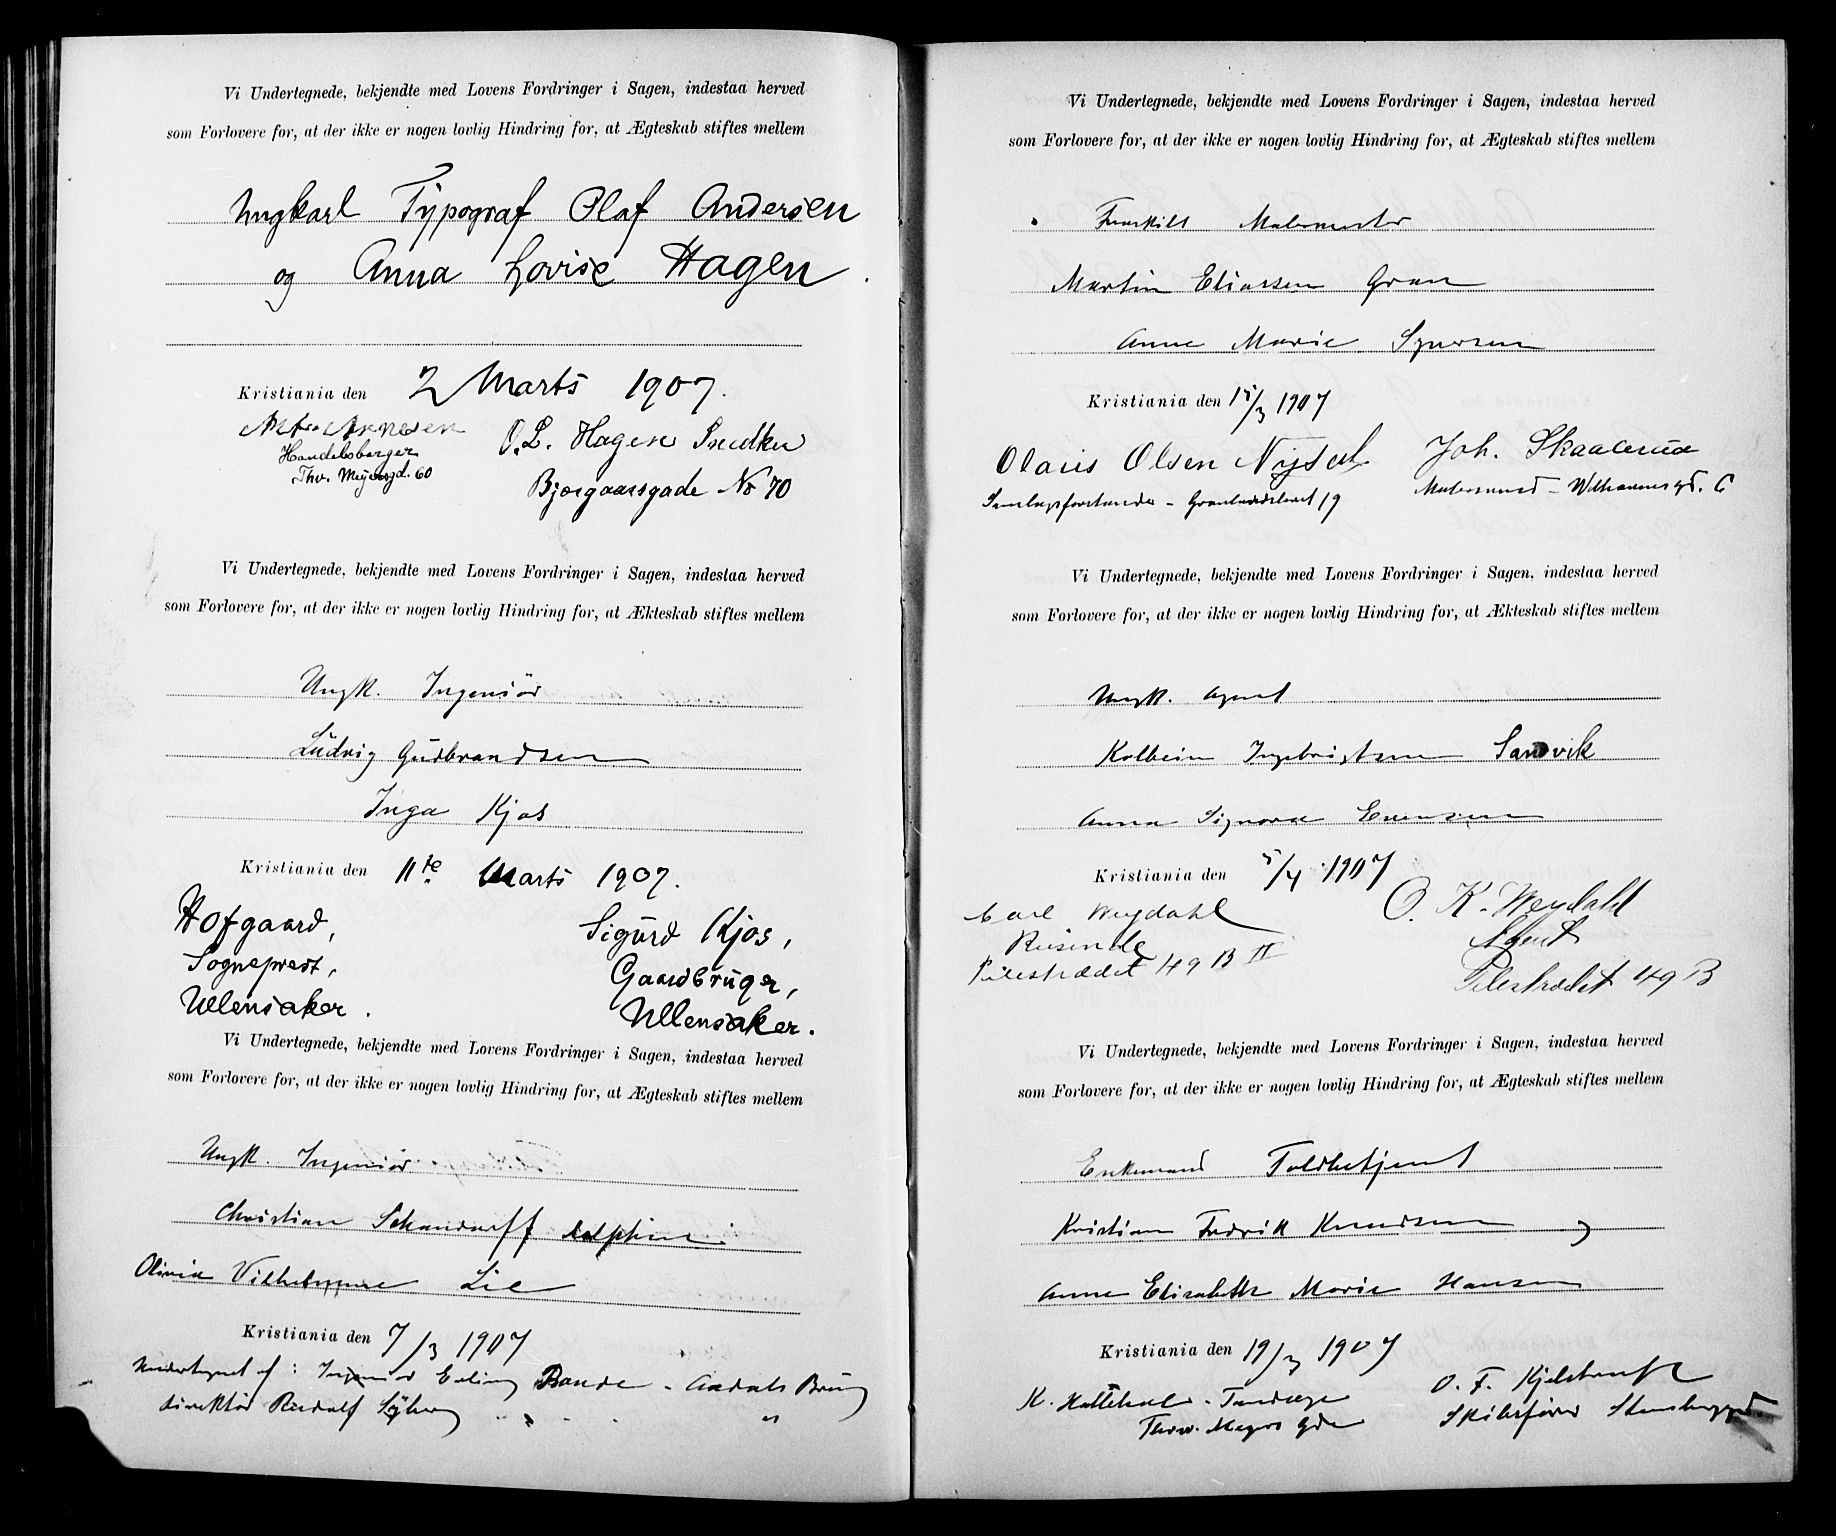 Vi Undertegnede, bekjendte med Lovens Fordringer i Sagen, indestaa herved
som Forlovere for, at der ikke er nogen lovlig Hindring for, at Ægteskab stiftes mellem
Ungkarl Typograf Olaf Andersen
og Anna Lovise Hagen
Kristiania den 2 Marts 1907.
Handelsborger
Thv. Meyersgd. 60
O. L. Hagen Snedker
Bjergaarsgade No 70
Vi Undertegnede, bekjendte med Lovens Fordringer i Sagen, indestaa herved
som Forlovere for, at der ikke er nogen lovlig Hindring for, at Ækteskab stiftes mellem
Ungk. Ingeniör
Ludvig Gudbrandsen
Inga Kjos
Kristiania den 11te Marts 1907.
Hofgaard,
Sogneprest,
Ullensaker.
Sigurd Kjos,
Gaardbruger,
Ullensaker.
Vi Undertegnede, bekjendte med Lovens Fordringer i Sagen, indestaa herved
som Forlovere for, at der ikke er nogen lovlig Hindring for, at Ægteskab stiftes mellem
Ungk. Ingeniör
Christian Schandorff Delphin
Olivia Vilhelmine Lie
Kristiania den 7/3 1907
Undertegnet af: Ingeniør Erling Bande - Aadals Brug
direktör Rudolf
Vi Undertegnede, bekjendte med Lovens Fordringer i Sagen, indestaa herved
som Forlovere for, at der ikke er nogen lovlig Hindring for, at Ægteskab stiftes mellem
Fraskilt Malermester
Martin Eliassen Gran
Anne Marie Syversen
Kristiania den 15/3 1907
Olaus Olsen
Samlagsforstander - Grønlandsleiret 19
Joh. Skaalerud
Malersvend - Wilhelmsgd. 6
Vi Undertegnede, bekjendte med Lovens Fordringer i Sagen, indestaa herved
som Forlovere for, at der ikke er nogen lovlig Hindring for, at Ækteskab stiftes mellem
Ungk. Agent
Kolbein Ingebrigtsen Sandvik
Anna Signora Evensen
Kristiania den 5/4 1907
Carl Weydahl
Reisende
Pilestrædet 49 B II
O. K. Weydahl
Agent
Pilestrædet 49 B
Vi Undertegnede, bekjendte med Lovens Fordringer i Sagen, indestaa herved
som Forlovere for, at der ikke er nogen lovlig Hindring for, at Ægteskab stiftes mellem
Enkemand Toldbetjent
Kristian Fredrik Knudsen og
Anne Elisabeth Marie Hansen
Kristiania den 19/3 1907
K. - Tandlæge
Thorv. Meyers gde
O. F. Kjelstrup
Skibsfører Stensberggd.